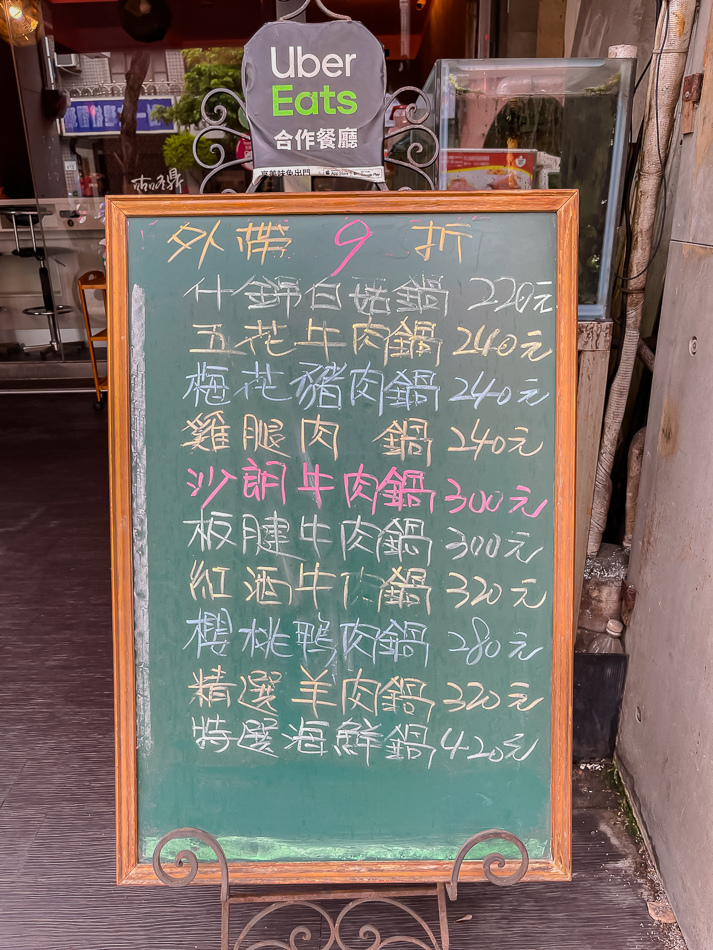 Uber
Eats
合作餐廳
享美味免出門
外帶 9 折
什錦白菇鍋 220元
五花牛肉鍋 240元
梅花豬肉鍋 240元
雞腿肉 鍋 240元
沙朗牛肉鍋 300元
板腱牛肉鍋 300元
紅酒牛肉鍋 320元
櫻桃鴨肉鍋 280元
精選羊肉鍋 320元
特選海鮮鍋 420元